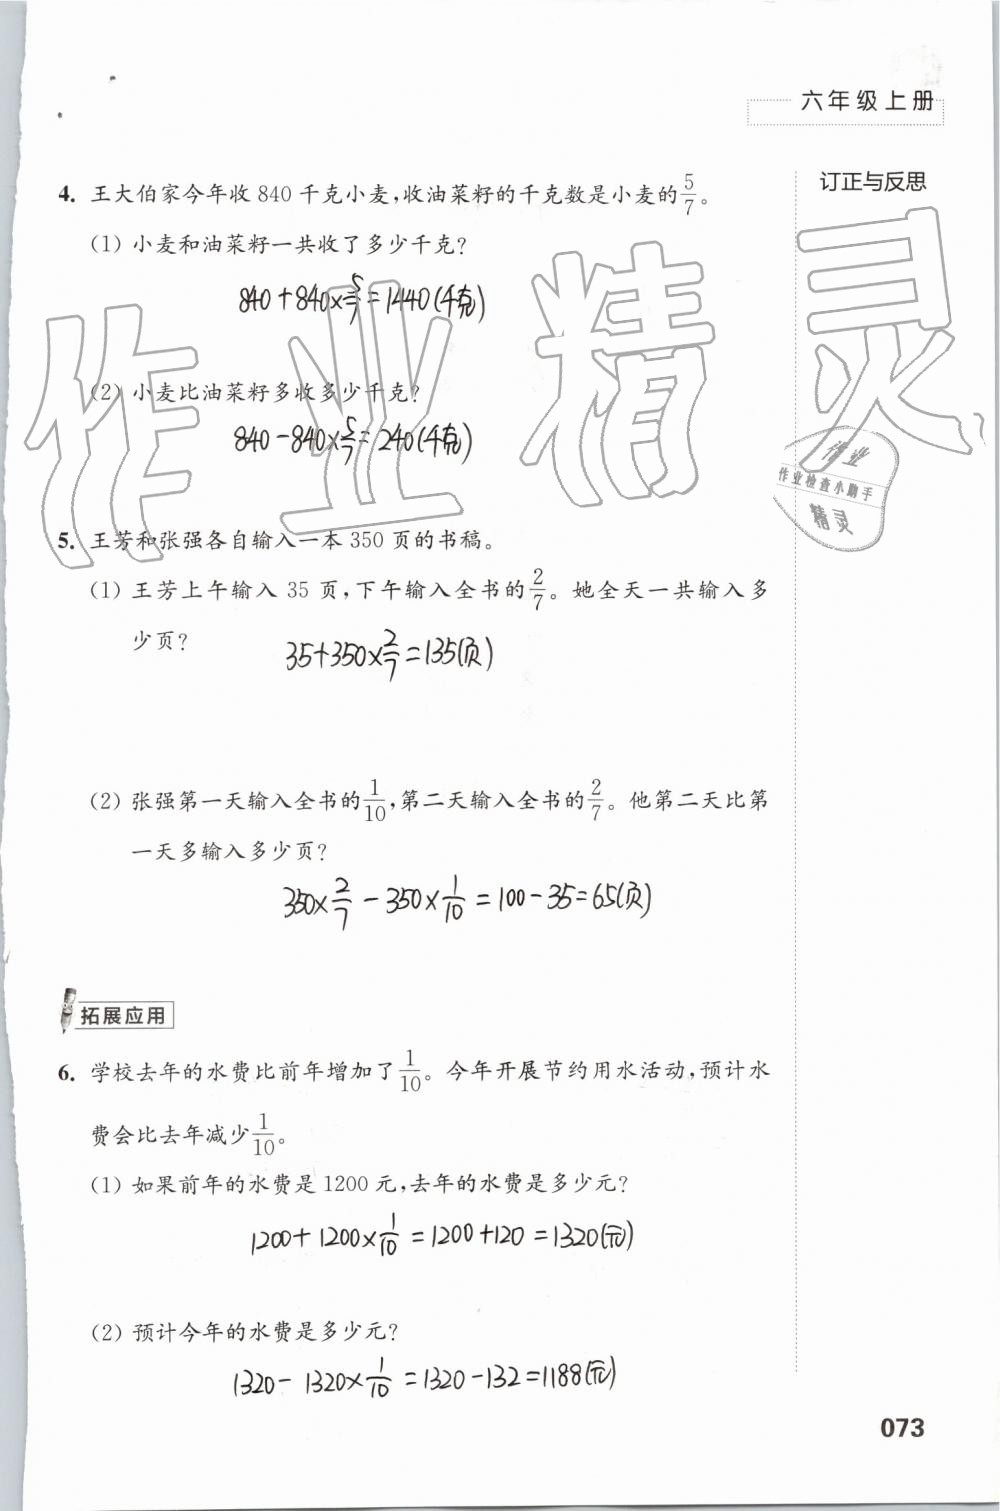 六年级上册
订正与反思
4. 王大伯家今年收 840 千克小麦,收油菜籽的千克数是小麦的5/7。
(1) 小麦和油菜籽一共收了多少千克?
840+840×5/7=1440(千克)
(2) 小麦比油菜籽多收多少千克?
840-840×5/7=240(千克)
作业精灵
作业
作业检查小助手
精灵
5. 王芳和张强各自输入一本 350 页的书稿。
(1) 王芳上午输入 35 页,下午输入全书的2/7。她全天一共输入多
少页?
35+350×2/7=135(页)
(2) 张强第一天输入全书的1/10,第二天输入全书的2/7。他第二天比第
一天多输入多少页?
350×2/7-350×1/10=100-35=65(页)
拓展应用
6. 学校去年的水费比前年增加了1/10。今年开展节约用水活动,预计水
费会比去年减少1/10。
(1) 如果前年的水费是 1200 元,去年的水费是多少元?
1200+1200×1/10=1200+120=1320(元)
(2) 预计今年的水费是多少元?
1320-1320×1/10=1320-132=1188(元)
073